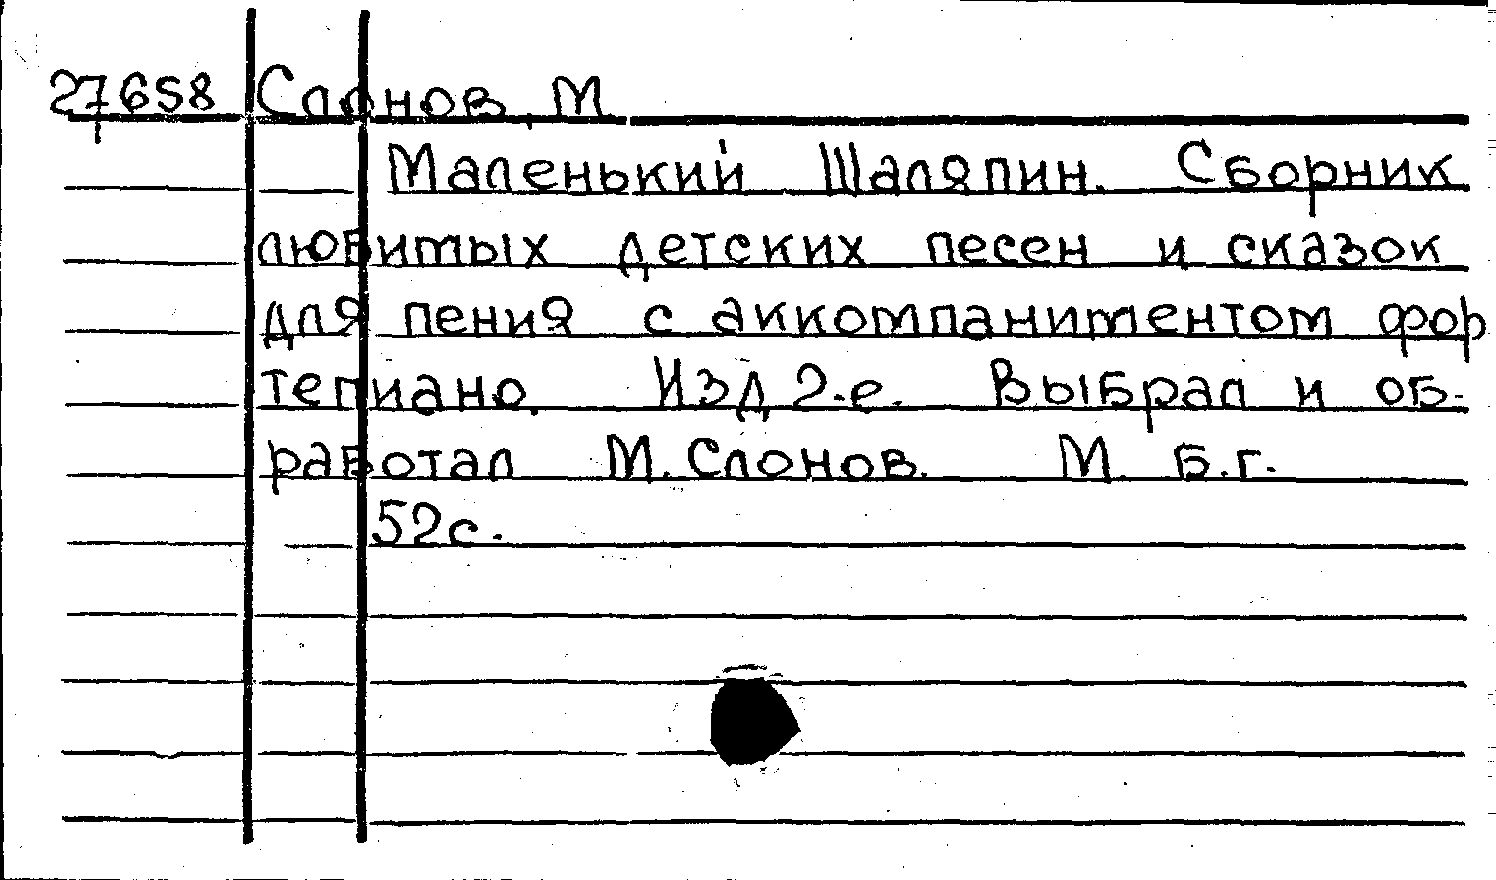 27658 Слонов, М.
Маленький Шаляпин. Сборник
любимых детских песен и сказок
для пения с аккомпаниментом фор
тепиано. Изд 2-е. Выбрал и об-
работал М. Слонов. М. Б.г.
52с.